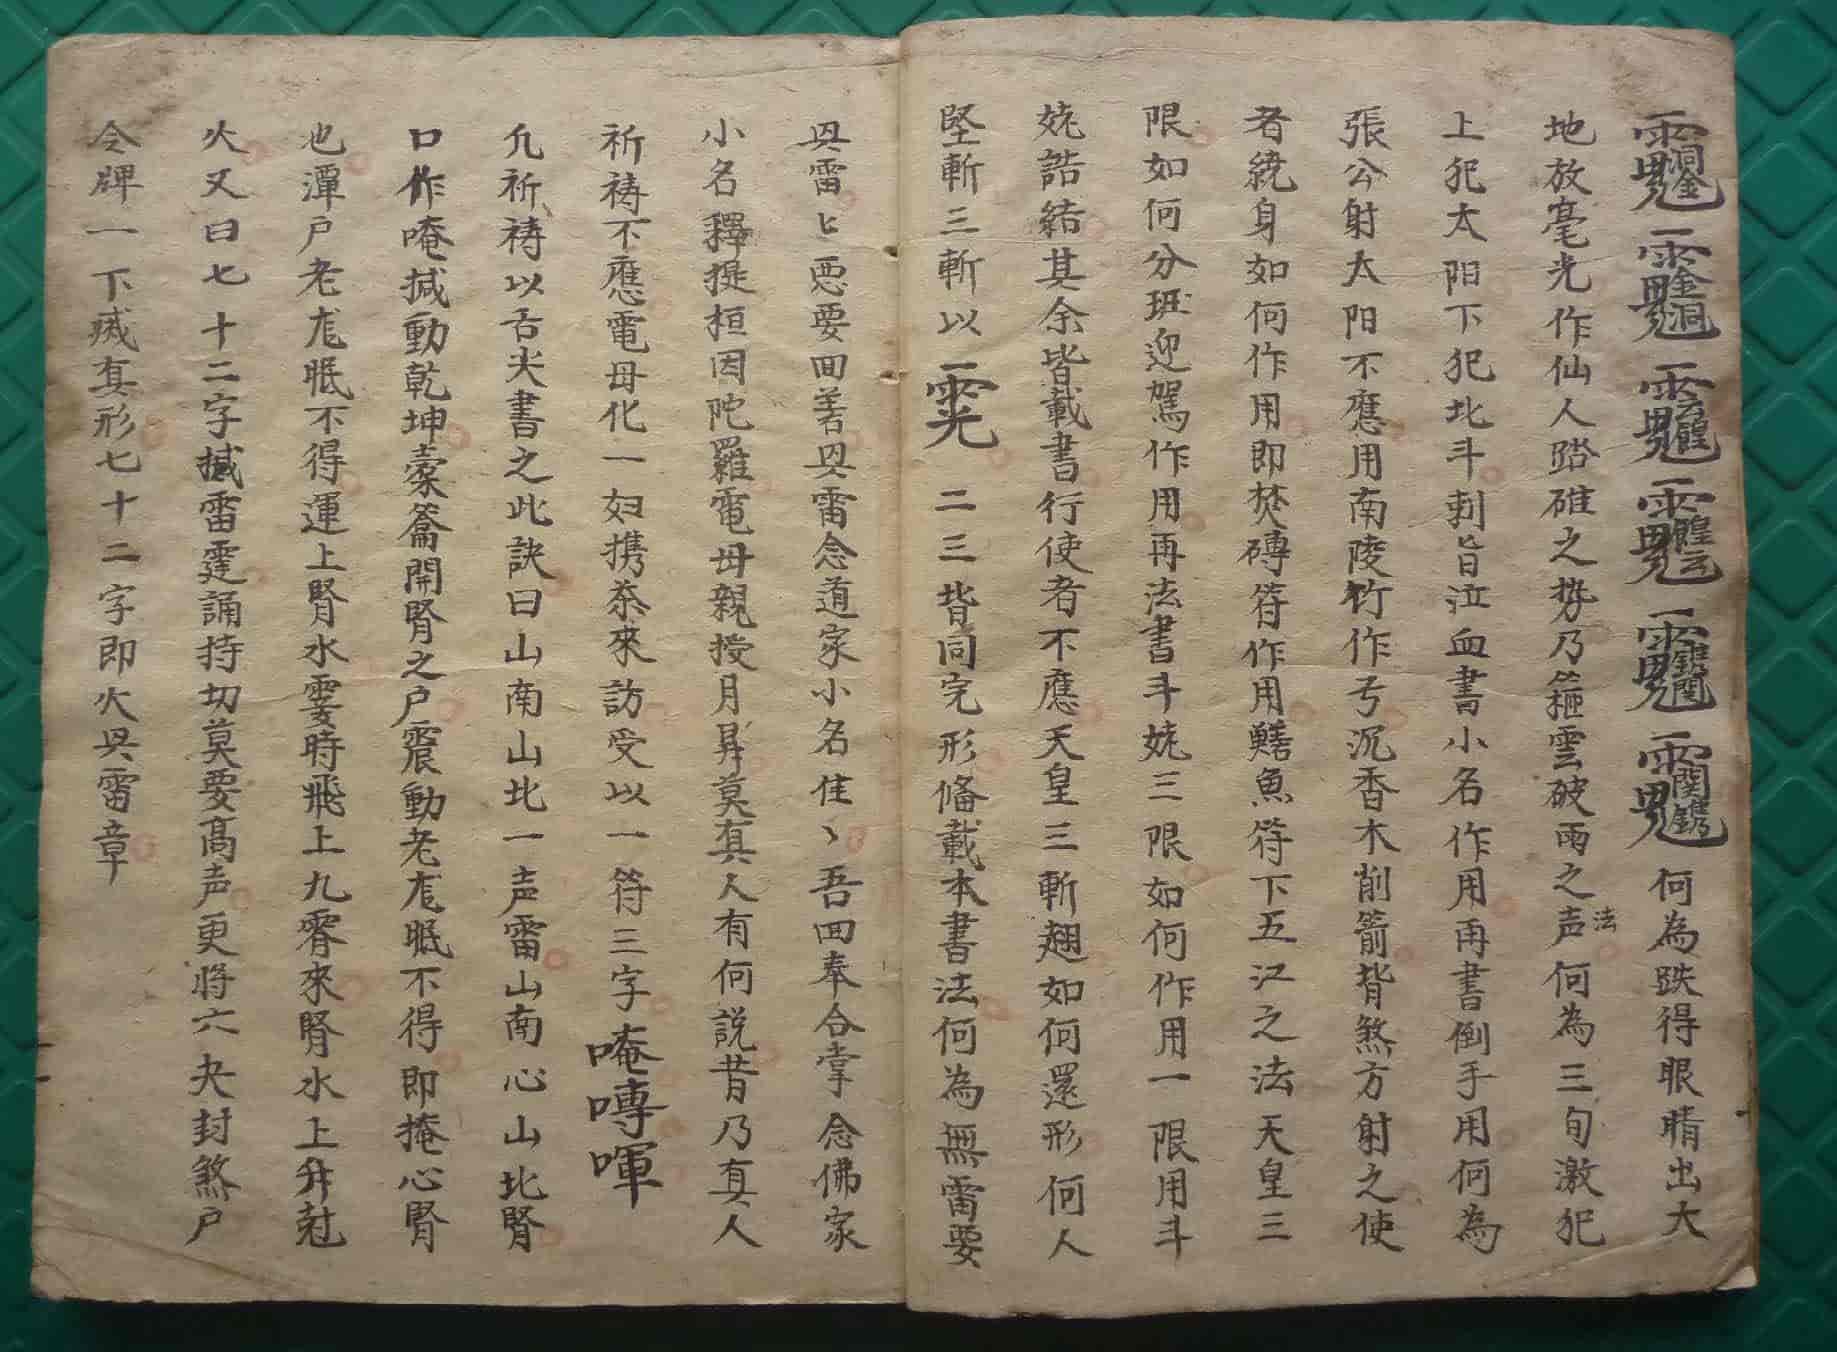 何為跌得眼睛出大
地放毫光作仙人踏碓之勢乃箍雲破雨之声法何為三旬激犯
上犯太阳下犯北斗剌旨泣血書小名作用再書倒手用何為
張公射太阳不應用南陵竹作弓沉香木削箭背煞方射之使
者繞身如何作用即焚磚符作用鱔魚符下五江之法天皇三
限如何分班迎駕作用再法書斗姺三限如何作用一限用斗
姺誥結其余皆載書行使者不應天皇三斬翅如何還形何人
堅斬三斬以二三皆同完形俻載本書法何為無雷要
雷匕要囬著雷念道家小名住丶吾囬奉合掌念佛家
小名釋提桓因陀羅電母親授月昇莫真人有何説昔乃真人
祈祷不應電母化一妇携茶來訪受以一符三字唵嚩喗
凢祈祷以舌尖書之此訣曰山南山北一声雷山南心山北腎
口作唵掝動乾坤橐籥開腎之户震動老尨眠不得即掩心腎
也潭户老尨眠不得運上腎水霎時飛上九霄來腎水上升尅
火又曰七十二字掝雷霆誦持切莫要高声更將六夬封煞户
令牌一下瘷真形七十二字即火雷章